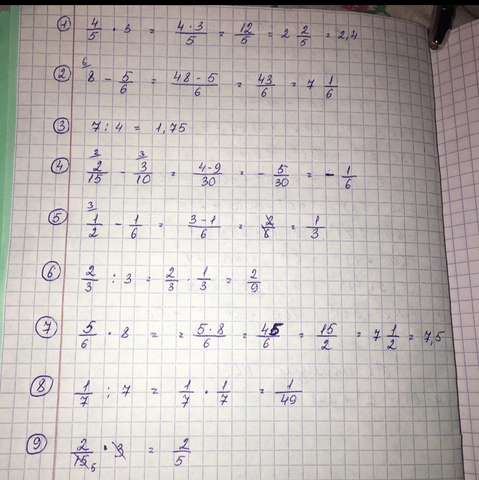 ① 4/5 · 3 = 4·3/5 = 12/5 = 2 2/5 = 2,4
② 8 - 5/6 = 48-5/6 = 43/6 = 7 1/6
③ 7 : 4 = 1,75
④ 2/15 - 3/10 = 4-9/30 = - 5/30 = - 1/6
⑤ 1/2 - 1/6 = 3-1/6 = 2/8 = 1/3
⑥ 2/3 : 3 = 2/3 · 1/3 = 2/9
⑦ 5/6 · 8 = = 5·8/6 = 45/6 = 15/2 = 7 1/2 = 7,5
⑧ 1/7 : 7 = 1/7 · 1/7 = 1/49
⑨ 2/15 5 · 3 = 2/5